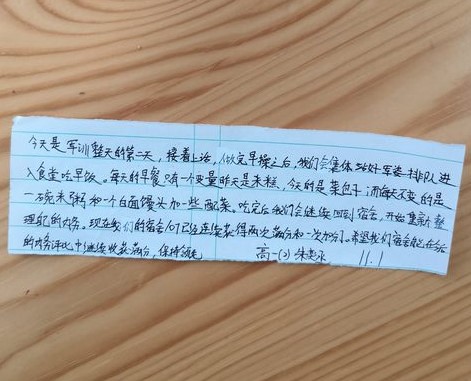 今天是军训整天的第一天，接着上话，做完早操之后，我们会集体站好军姿排队进
入食堂吃早饭。每天的早餐只有一个变量昨天是米糕，今天的是菜包子而每天不变的是
一碗米粥和一个白面馒头加一些配菜。吃完后我们会继续回到宿舍，开始重新整
理的内务。现在我们的宿舍已经连续获得两次满分和一次加分。希望我们宿舍能在今后
的内务评比中继续收获满分，保持领先
高一(2) 朱 11.1